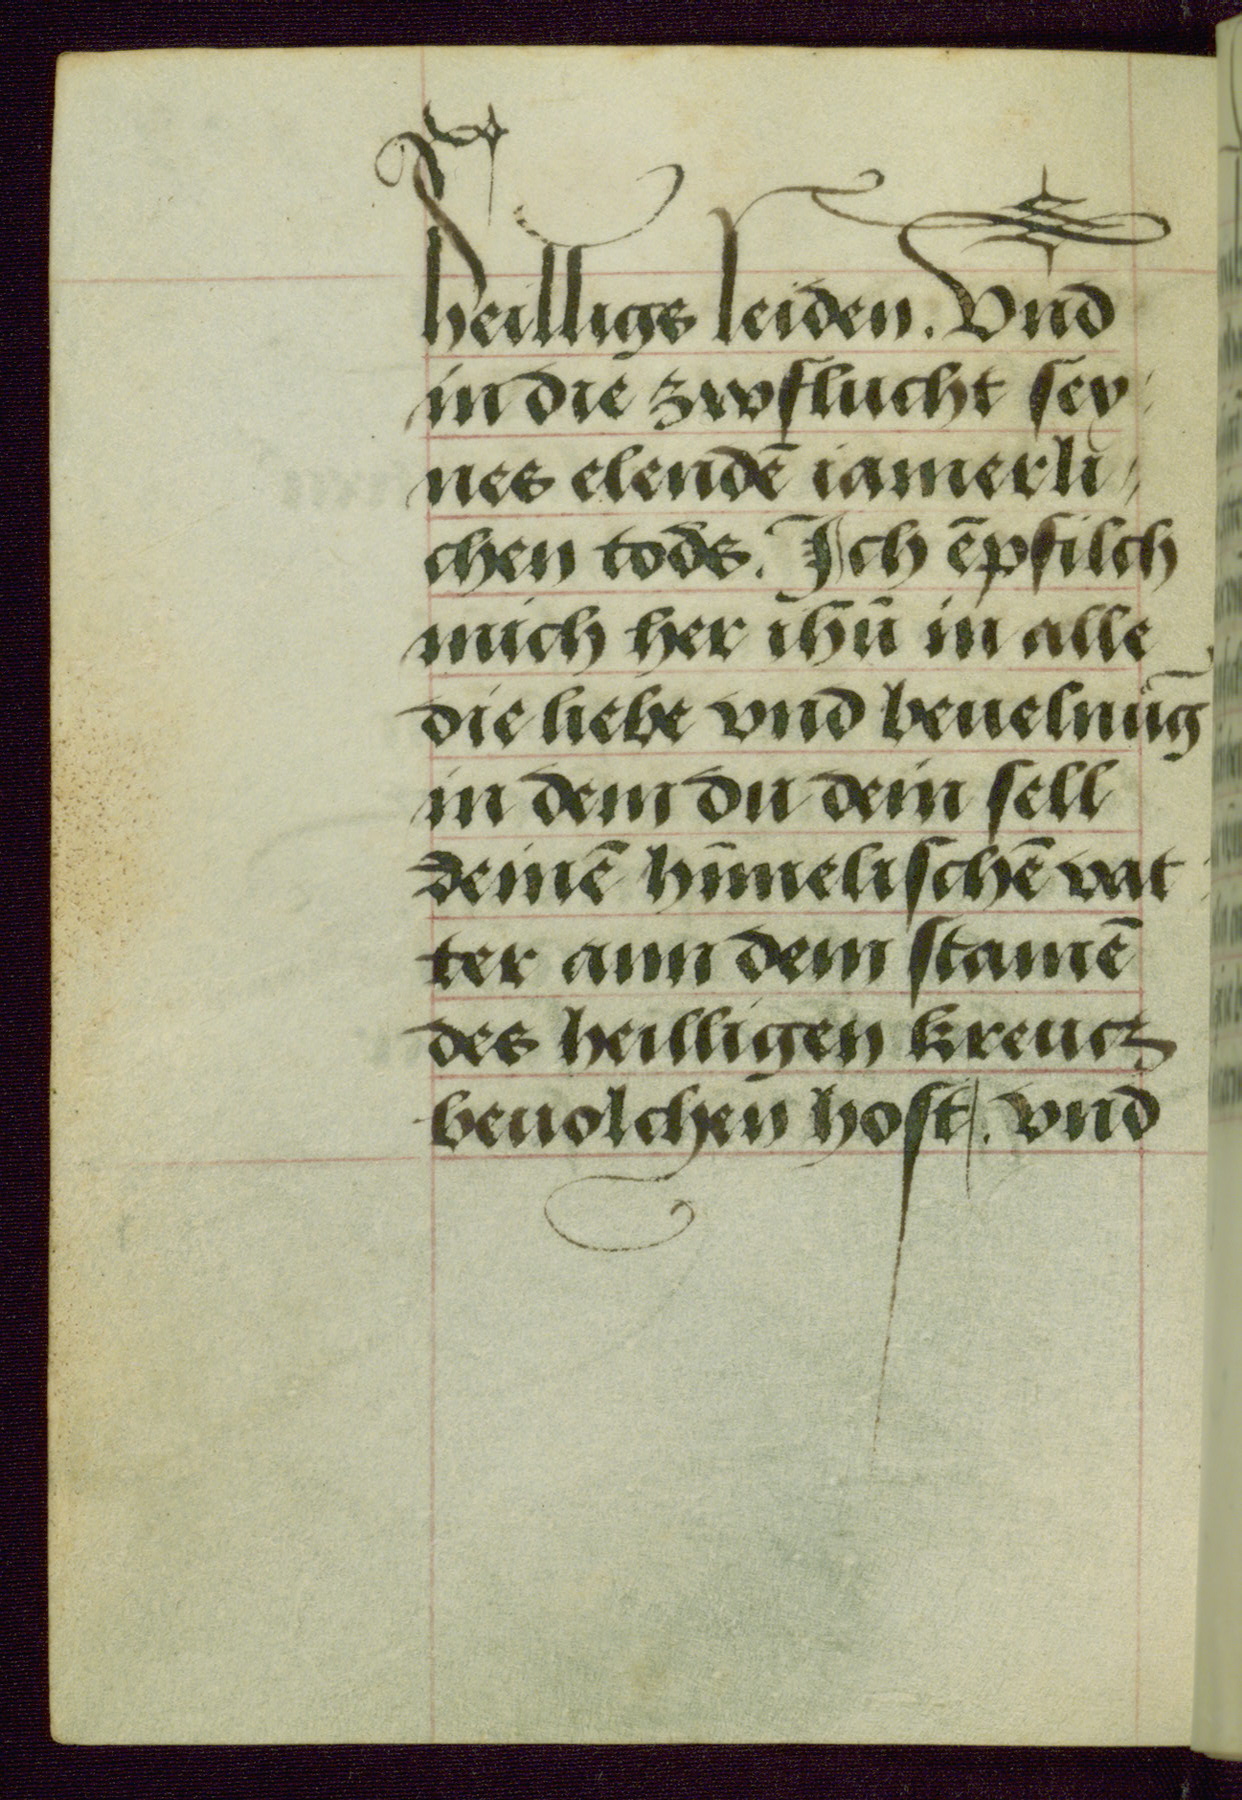 heilligs leiden. Vnd
in die zwflucht sey
nes elendē iamerli
chen tods. Ich ēpfilch
mich her ihū in alle
die liebe vnd beuelnūg
in dem du dein sell
deinē hīmelischē vat
ter ann dem stamē
des heilligen kreucz
beuolchen host. vnd